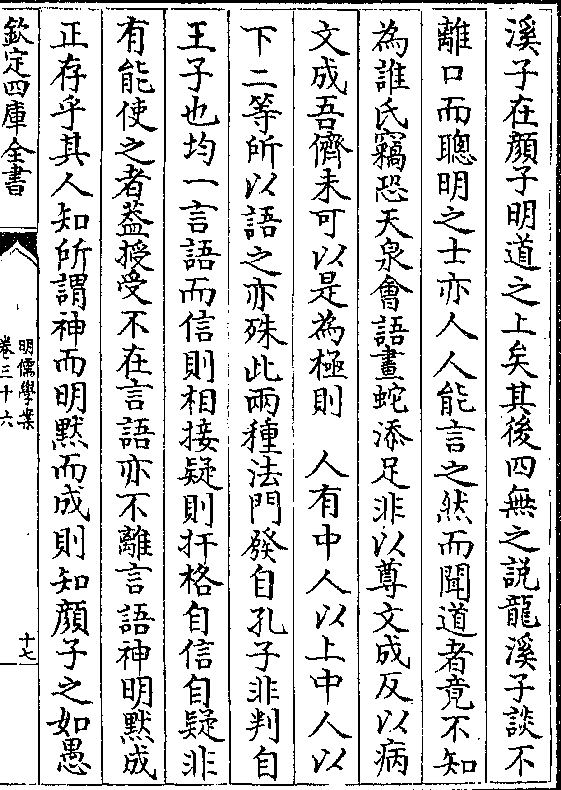 溪子在顔子明道之上矣其後四無之説龍溪子談不
離口而聰明之士亦人人能言之然而聞道者竟不知
為誰氏竊恐天泉會語畫蛇添足非以尊文成反以病
文成吾儕未可以是為極則　人有中人以上中人以
下二等所以語之亦殊此兩種法門發自孔子非判自
王子也均一言語而信則相接疑則扞格自信自疑非
有能使之者葢授受不在言語亦不離言語神明黙成
正存乎其人知所謂神而明黙而成則知顔子之如愚
欽定四庫全書
明儒學案
卷三十六
十七